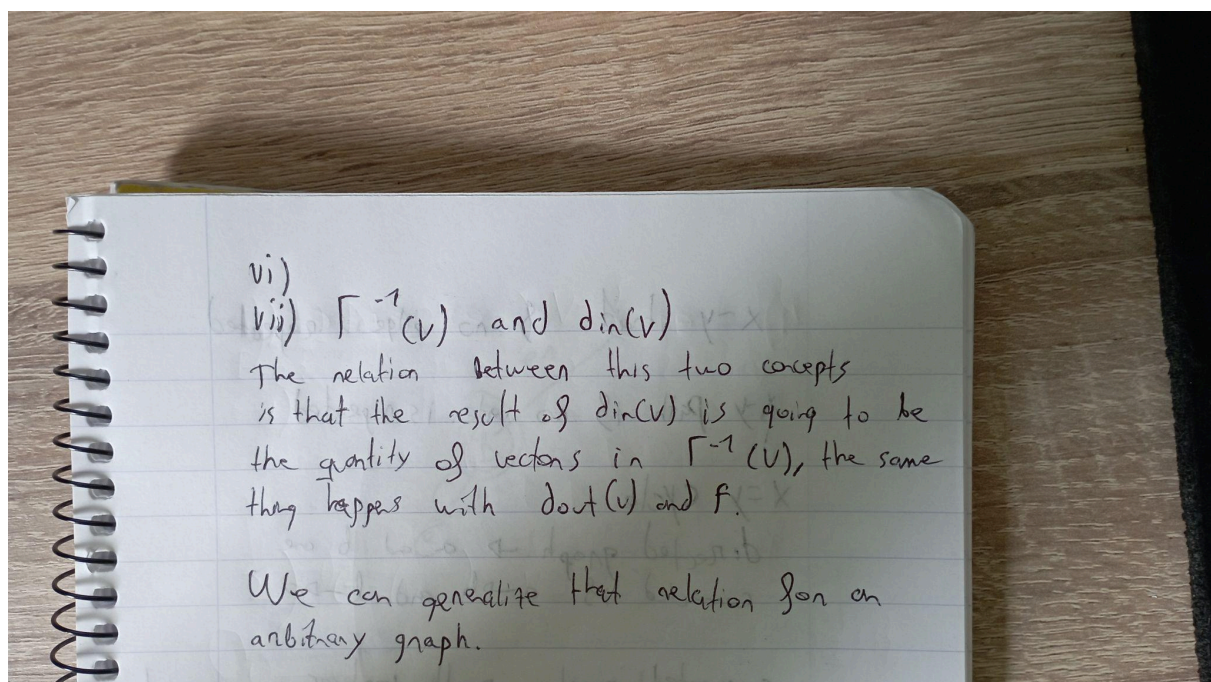 vi)
vii) Γ⁻¹(v) and din(v)
The relation between this two concepts
is that the result of din(v) is going to be
the quantity of vectors in Γ⁻¹(v), the same
thing happens with dout(v) and Γ.
We can generalize that relation for an
arbitrary graph.